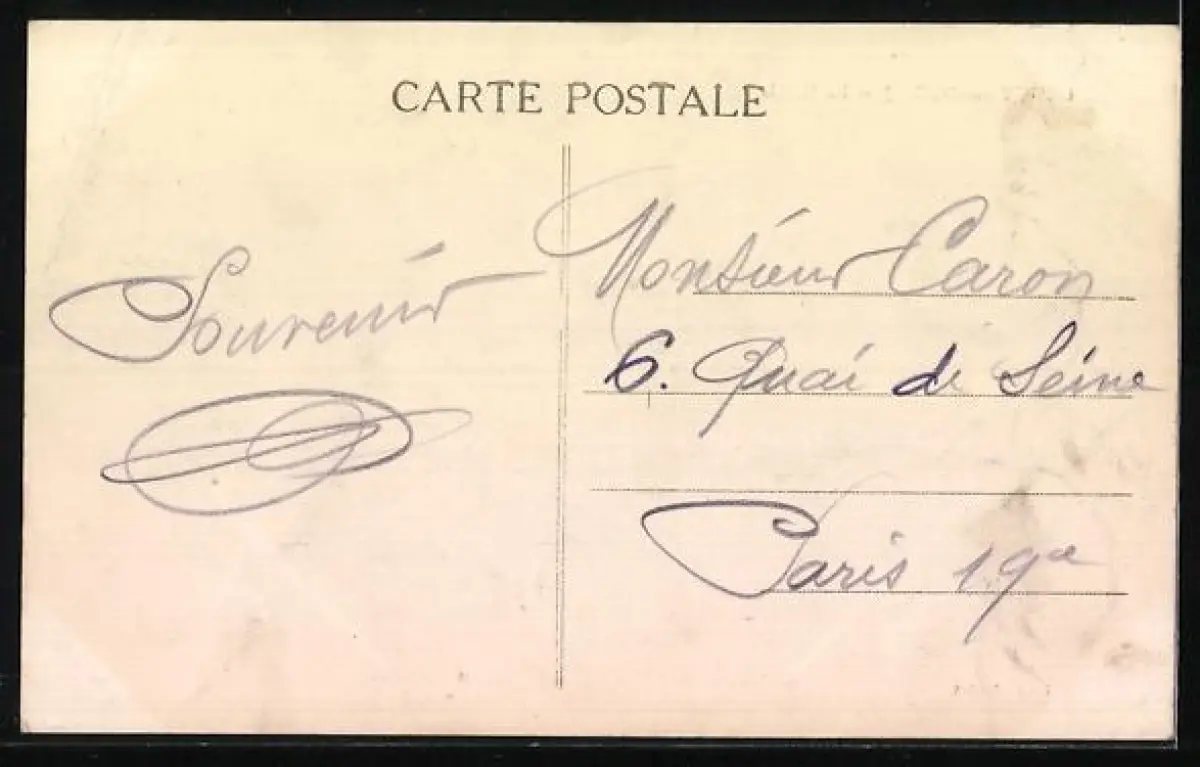 CARTE POSTALE
Souvenir
Monsieur Caron
6. Quai de Seine
Paris 19e